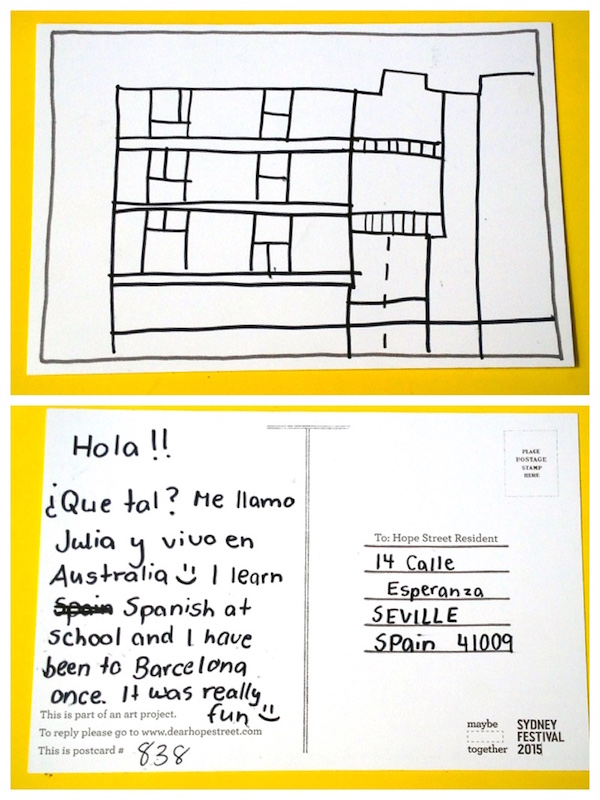 Hola!!
¿Que tal? Me llamo
Julia y vivo en
Australia I learn
Spain Spanish at
school and I have
been to Barcelona
once. It was really
fun
This is part of an art project.
To reply please go to www.dearhopestreet.com
This is postcard # 838
PLACE
POSTAGE
STAMP
HERE
To: Hope Street Resident
14 Calle
Esperanza
SEVILLE
Spain 41009
maybe
together
SYDNEY
FESTIVAL
2015